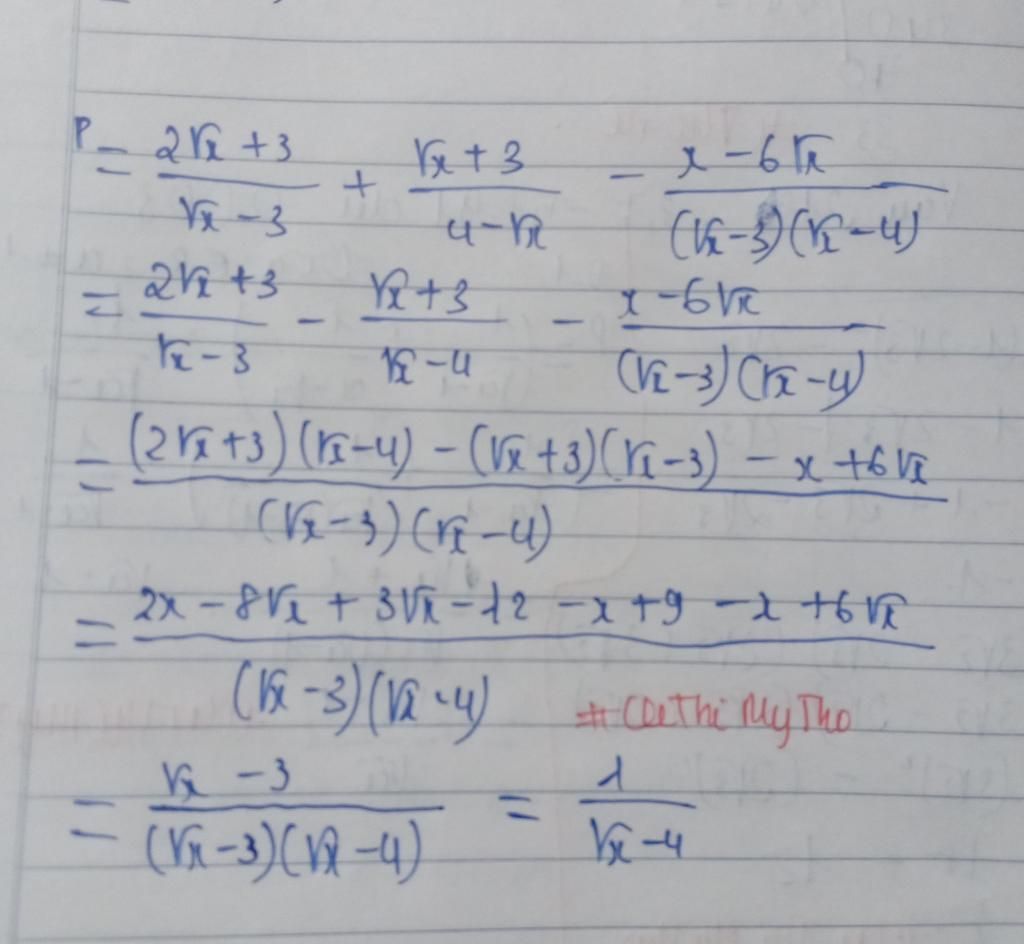 P = (2√x + 3)/(√x - 3) + (√x + 3)/(4 - √x) - (x - 6√x)/((√x - 3)(√x - 4))
= (2√x + 3)/(√x - 3) - (√x + 3)/(√x - 4) - (x - 6√x)/((√x - 3)(√x - 4))
= ((2√x + 3)(√x - 4) - (√x + 3)(√x - 3) - x + 6√x)/((√x - 3)(√x - 4))
= (2x - 8√x + 3√x - 12 - x + 9 - x + 6√x)/((√x - 3)(√x - 4))
#CaeThiMyTho
= (√x - 3)/((√x - 3)(√x - 4)) = 1/(√x - 4)